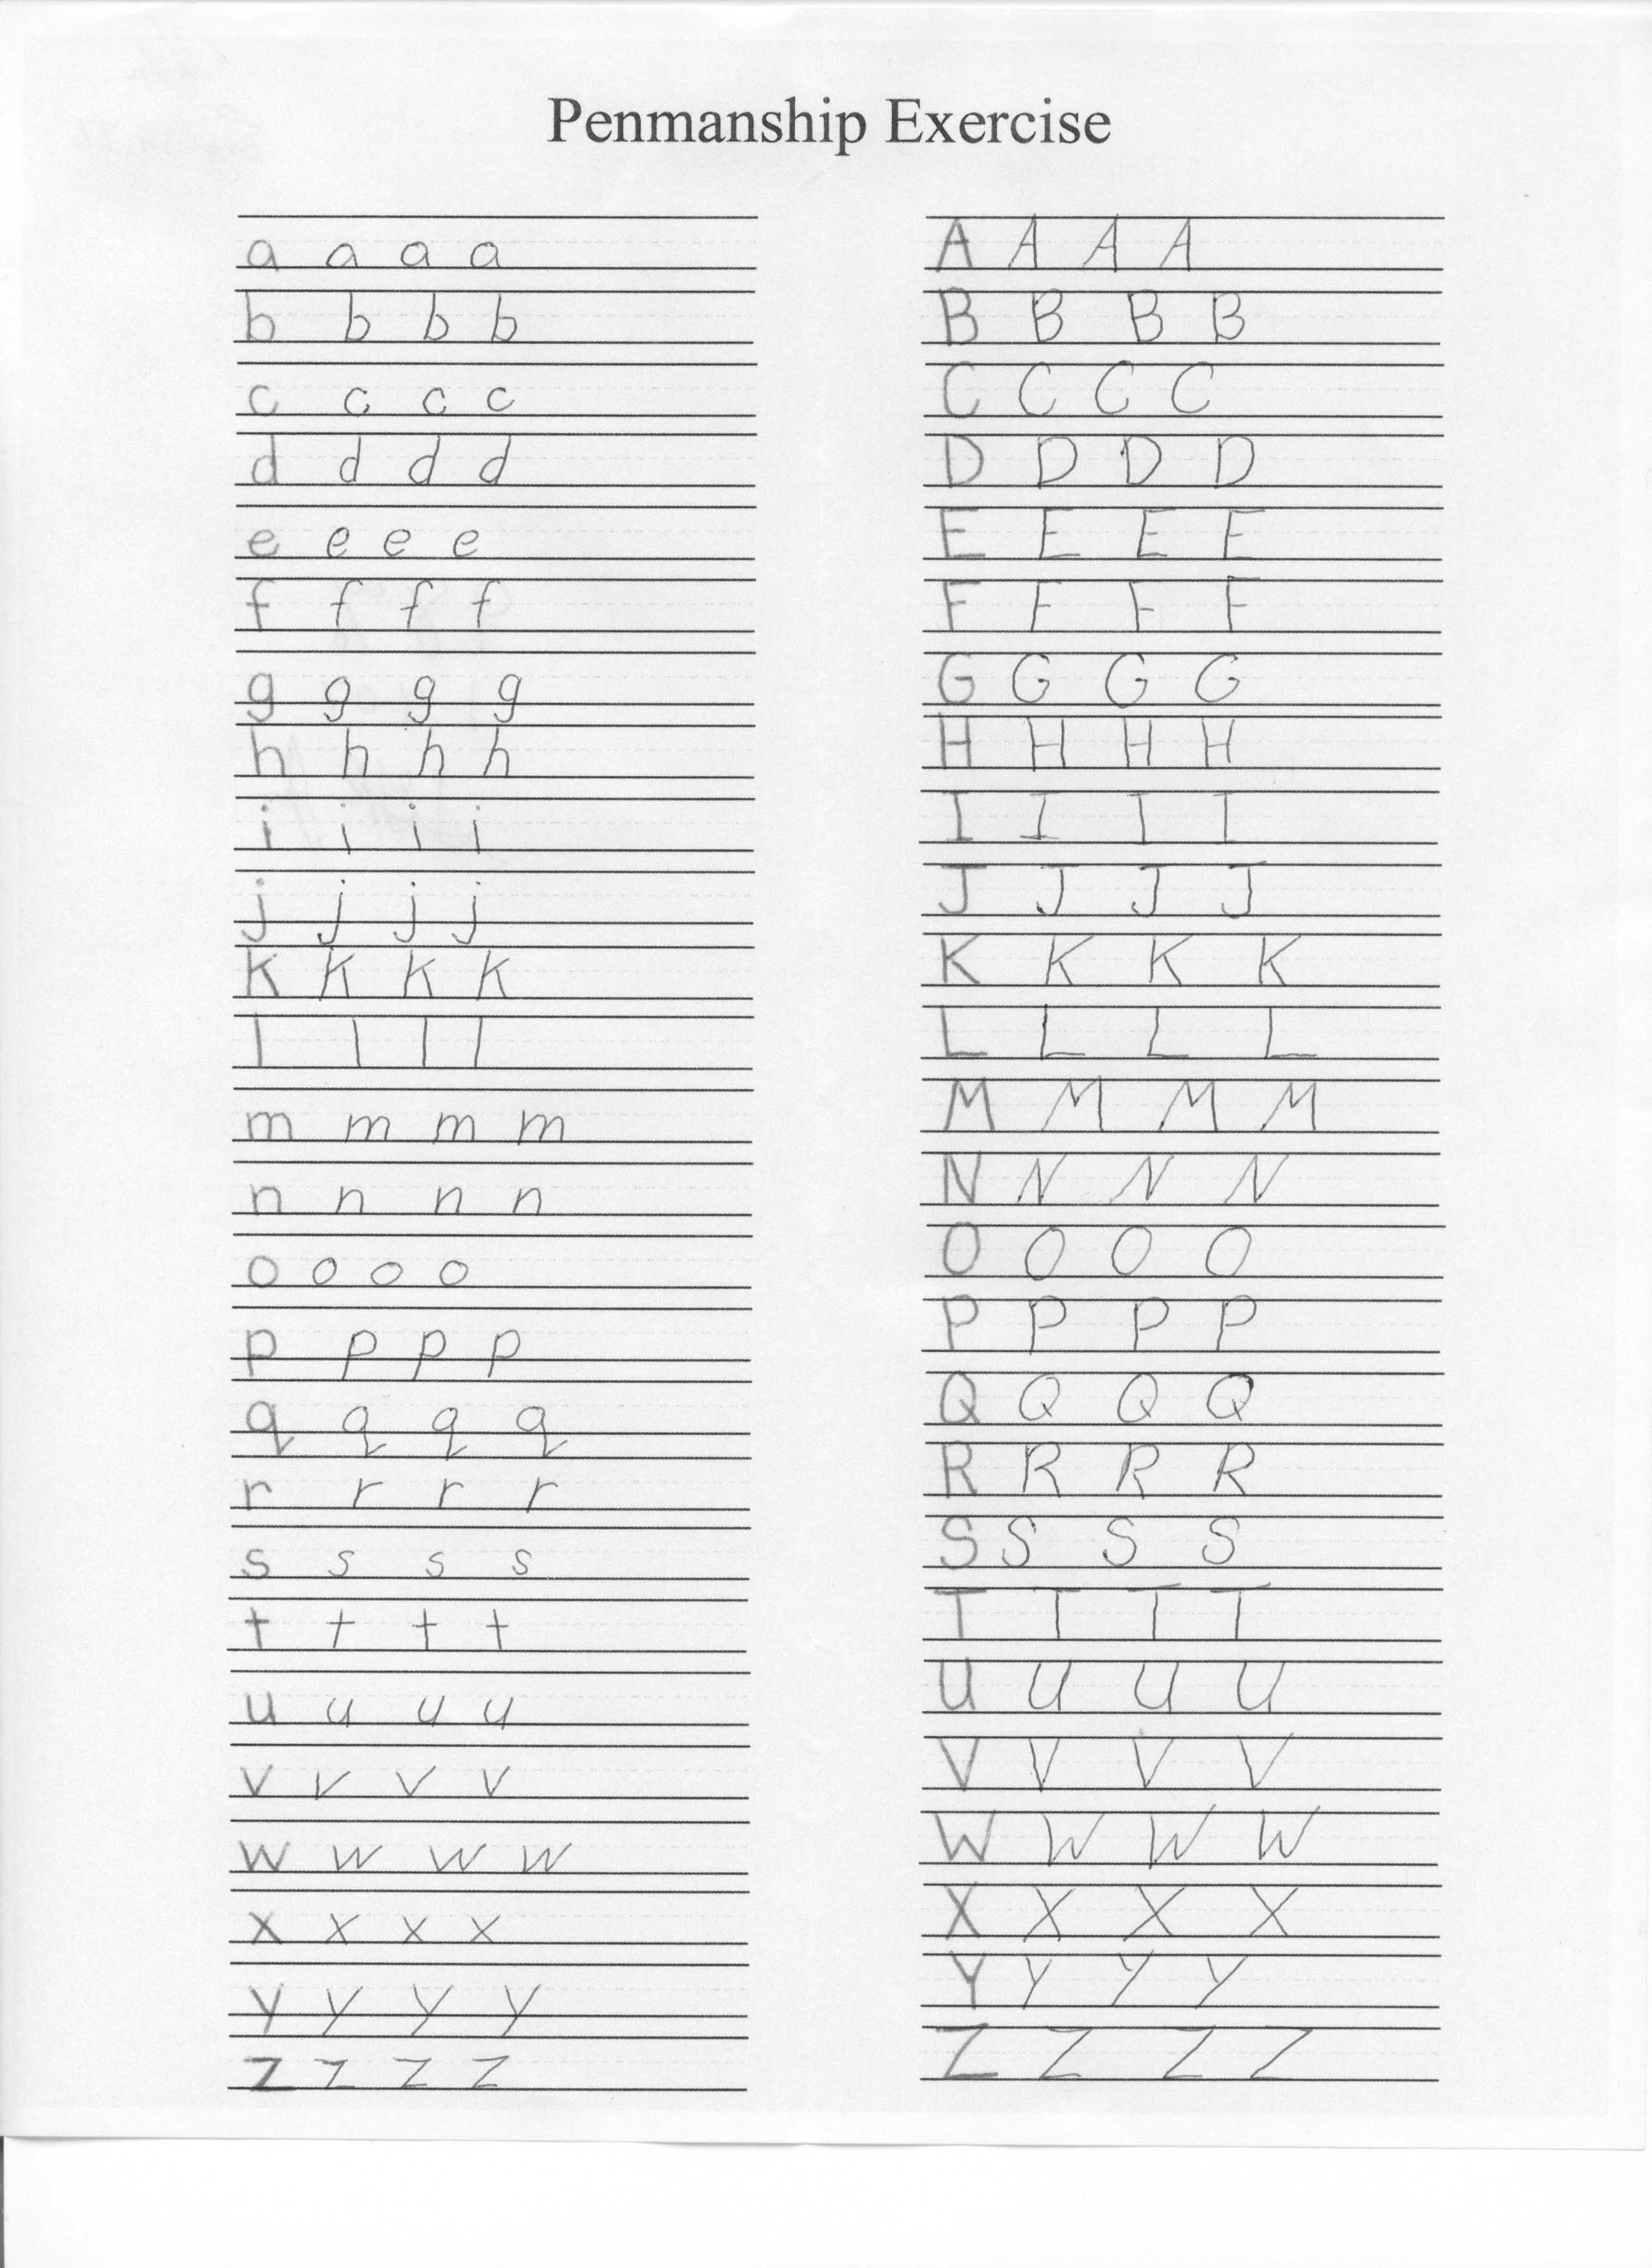 Penmanship Exercise
a a a a
b b b b
c c c c
d d d d
e e e e
f f f f
g g g g
h h h h
i i i i
j j j j
k k k k
l l l l
m m m m
n n n n
o o o o
p p p p
q q q q
r r r r
s s s s
t t t t
u u u u
v v v v
w w w w
x x x x
y y y y
z z z z
A A A A
B B B B
C C C C
D D D D
E E E E
F F F F
G G G G
H H H H
I I I I
J J J J
K K K K
L L L L
M M M M
N N N N
O O O O
P P P P
Q Q Q Q
R R R R
S S S S
T T T T
U U U U
V V V V
W W W W
X X X X
Y Y Y Y
Z Z Z Z